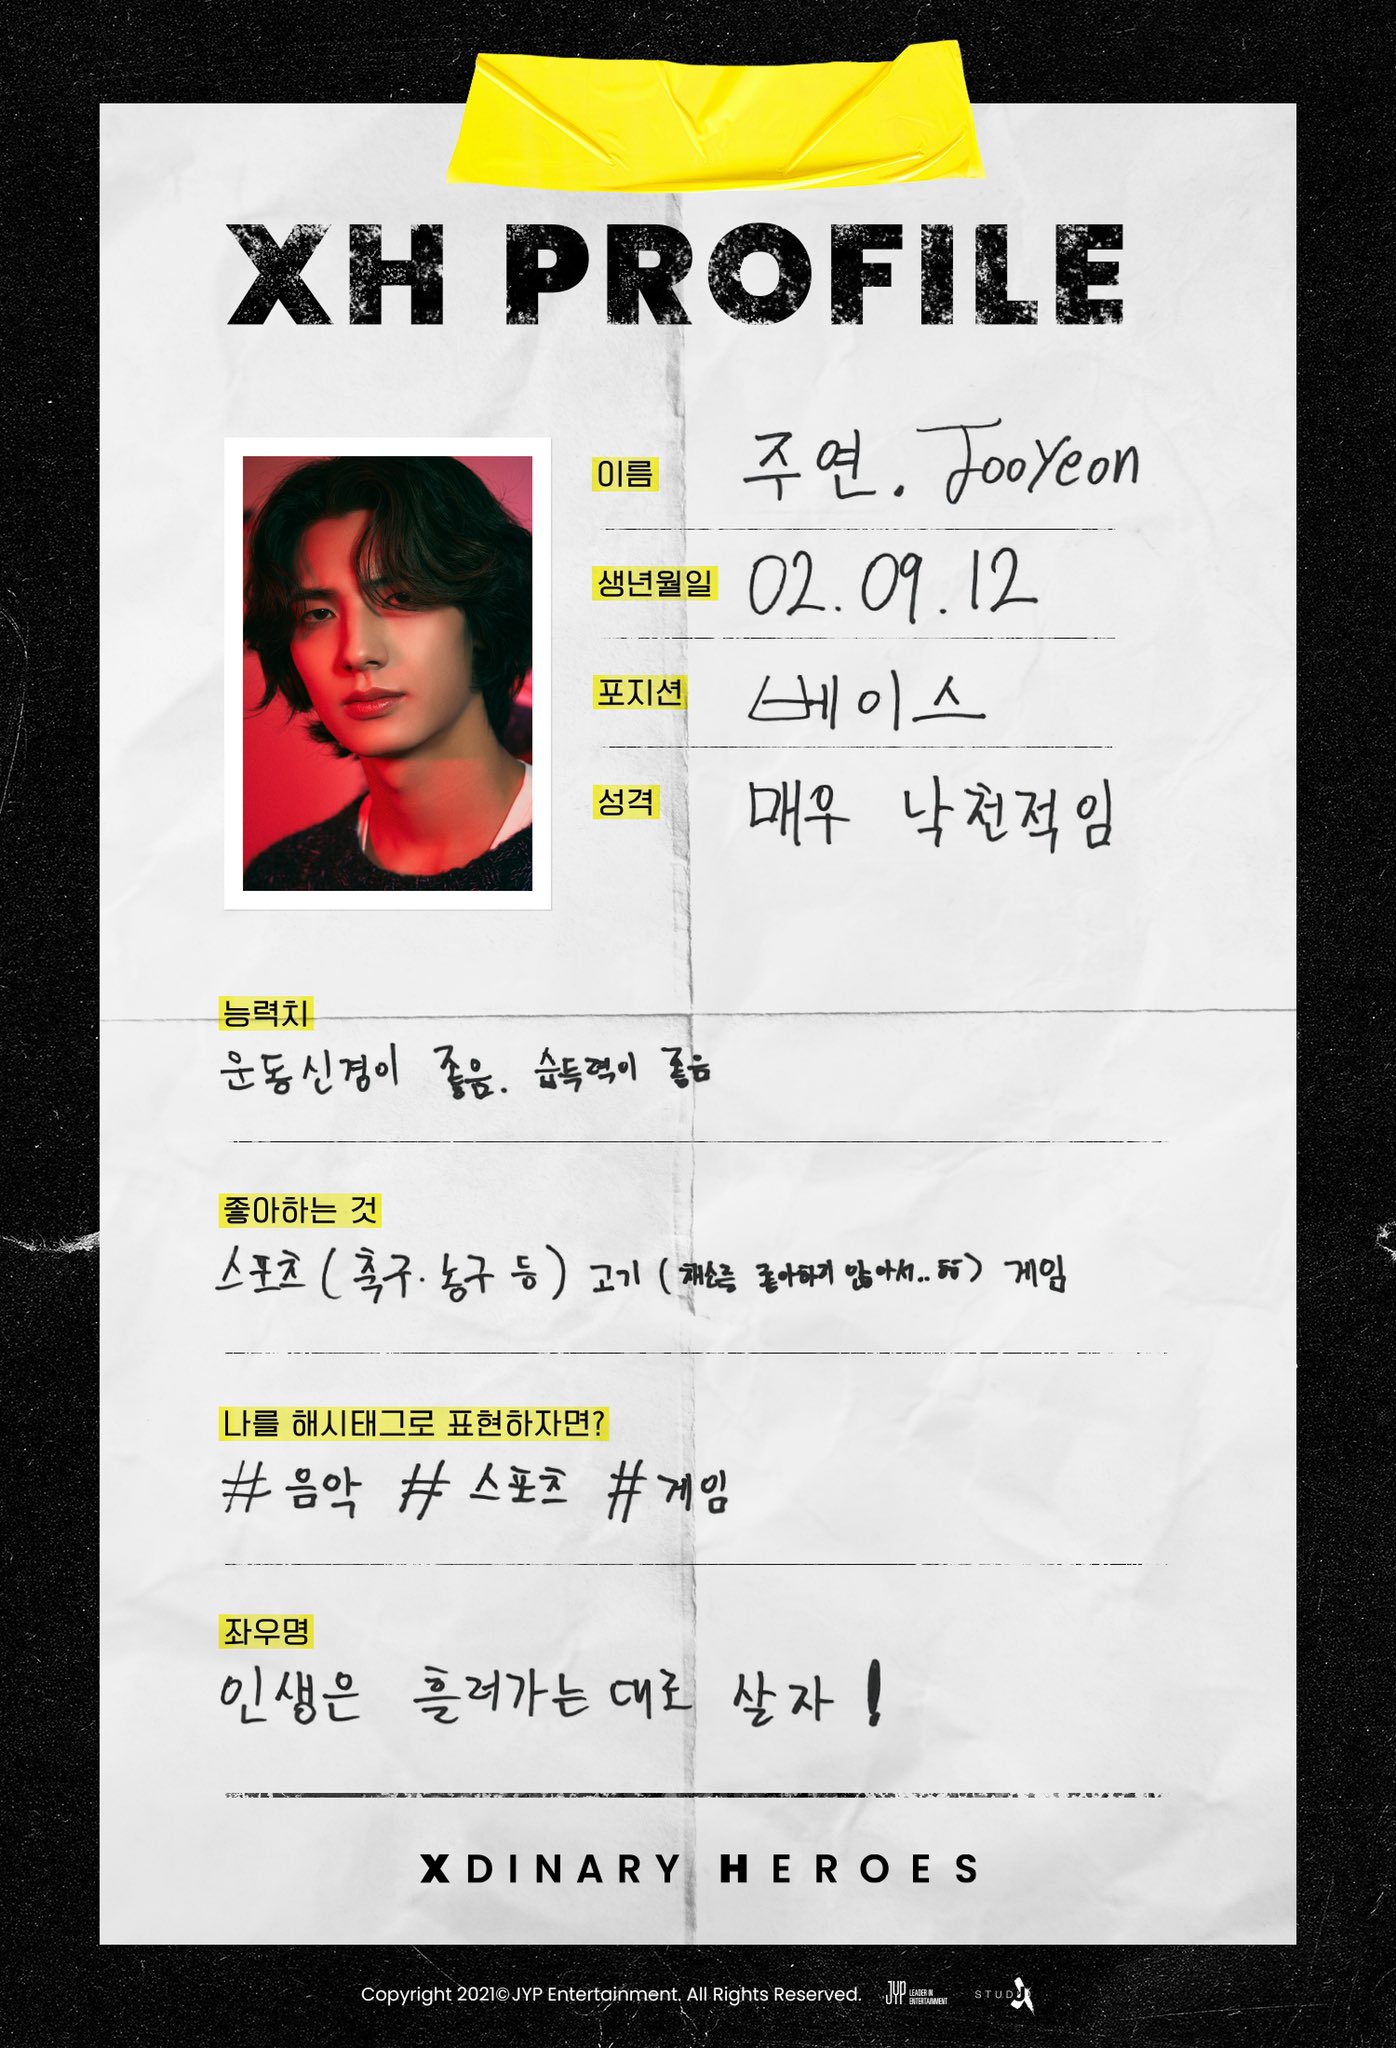 XH PROFILE
이름 주연. JooYeon
생년월일 02.09.12
포지션 베이스
성격 매우 낙천적임
능력치
운동신경이 좋음. 습득력이 좋음
좋아하는 것
스포츠 (축구·농구 등) 고기 (채소를 좋아하지 않아서.. ㅎㅎ) 게임
나를 해시태그로 표현하자면?
#음악 #스포츠 #게임
좌우명
인생은 흘러가는 대로 살자!
XDINARY HEROES
Copyright 2021©JYP Entertainment. All Rights Reserved. JYP LEADER IN ENTERTAINMENT STUD